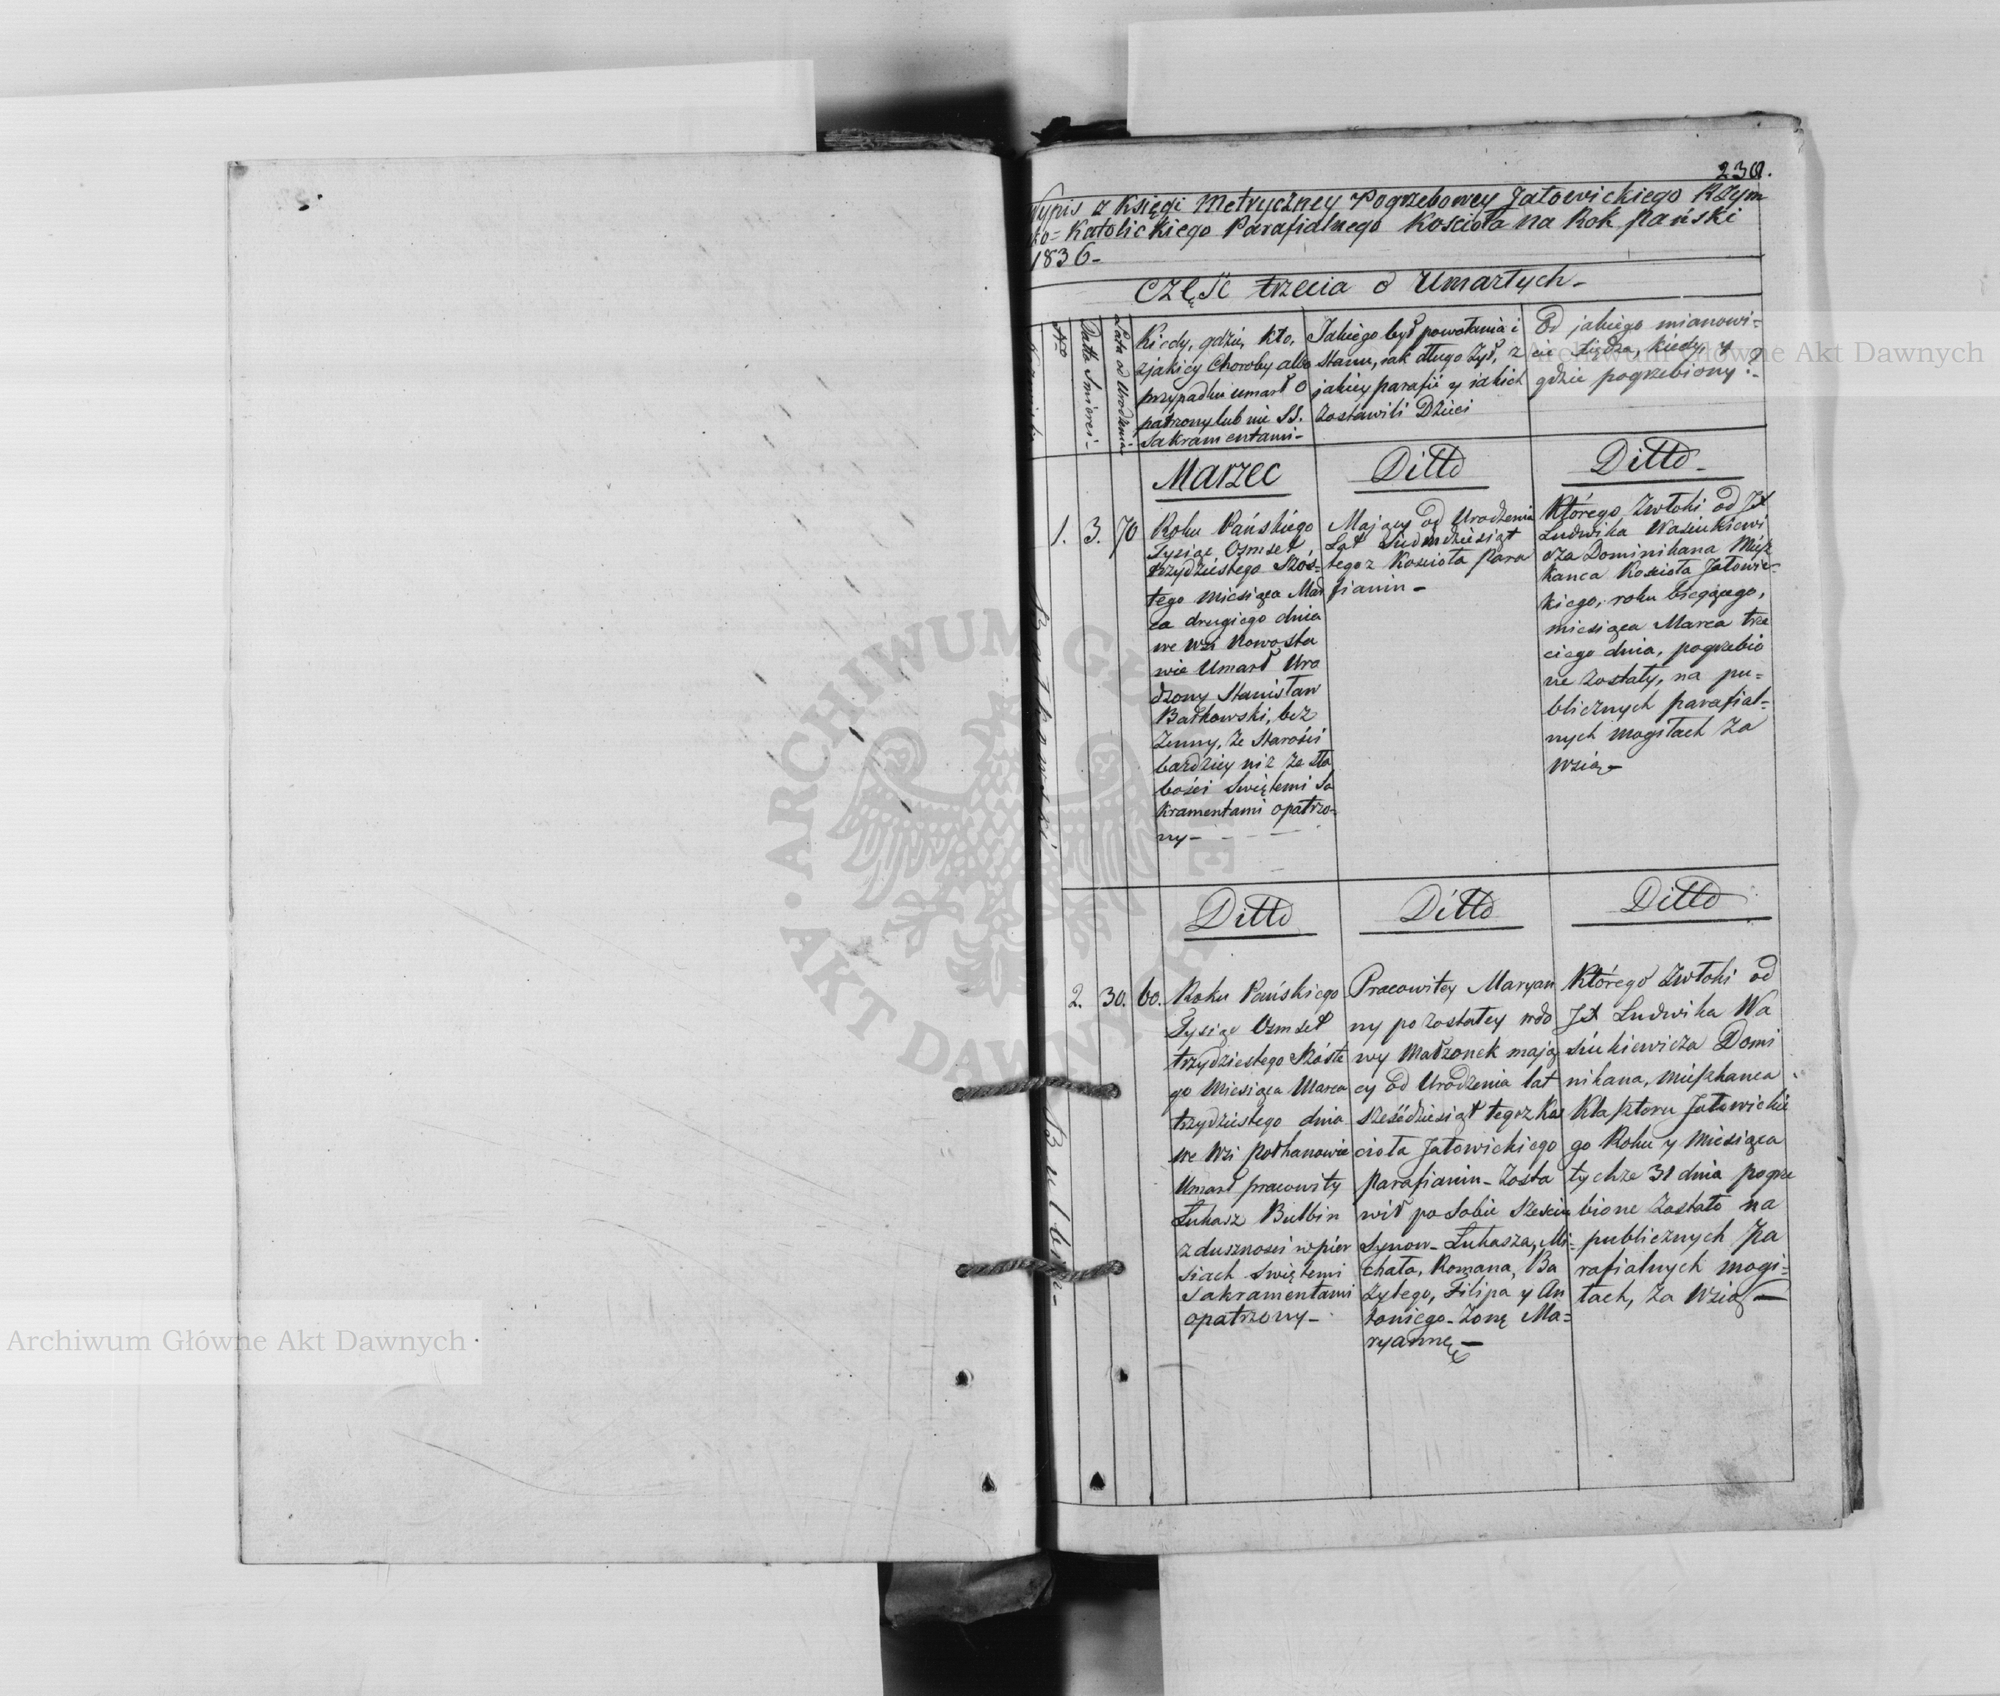 230.
Wypis z Księgi Metryczney Pogrzebowey Jałowickiego Rzym
sko=Katolickiego Parafialnego Kościoła na Rok Pański
1836-
Część trzecia o Umarłych-
Nro
Datta Śmierci-
Lata od Urodzenia
Kiedy, gdzie, kto,
z jakiey Choroby albo
przypadku umarł O
patrzony lub nie SS.
Sakramentami-
Jakiego był powołania i
Stanu, jak długo żył, z
jakiey parafii y jakich
zostawili Dzieci
Od jakiego mianowi=
cie Xiędza, kiedy, y
gdzie pogrzebiony?-
Marzec
Ditto
Ditto-
1.
3.
70
Roku Pańskiego
Tysiąc Ozmset
trzydziestego Szós=
tego miesiąca Mar
ca drugiego dnia
we wsi Nowosta
wie Umarł Uro
dzony Stanisław
Bałkowski, bez
żenny, ze Starości
bardziey niż ze sła
bości Swiętemi Sa
kramentami opatrzo=
ny-
Mający od Urodzenia
Lat Siedmdziesiąt
tegoz Kościoła Para
fianin-
Którego Zwłoki od JX
Ludwika Wasiukiewi
cza Dominikana Miesz
kanca Kościoła Jałowic=
kiego, roku biegącego,
miesiąca Marca trze
ciego dnia, pogrzebio
ne zostały, na pu=
blicznych parafial=
nych mogiłach Za
wsią-
Ditto
Ditto
Ditto
2.
30.
60.
Roku Pańskiego
Tysiąc Ozmset
trzydziestego Szóste
go Miesiąca Marca
trzydziestego dnia
we wsi Pothanowie
Umarł pracowity
Łukasz Bulbin
z duszności w pier
siach Swiętemi
Sakramentami
opatrzony-
Pracowitey Maryan
ny pozostałey wdo
wy Małżonek mają
cy od Urodzenia lat
sześćdziesiąt tegoż Koś
cioła Jałowickiego
Parafianin- Zosta
wił po Sobie Sześciu
Synow- Łukasza, Mi=
chała, Romana, Ba
zylego, Filipa y An
toniego- Żonę Ma=
ryannę-
Którego Zwłoki od
JX Ludwika Wa
siukiewicza Domi
nikana, Mieszkanca
Klasztoru Jałowickie
go Roku y Miesiąca
tychże 31 dnia pogrze
bione Zostało na
publicznych Pa
rafialnych mogi=
łach, Za Wsią-
Bałkowski
Bulbin-
Archiwum Główne Akt Dawnych
Archiwum Główne Akt Dawnych
ARCHIWUM GŁÓWNE
AKT DAWNYCH